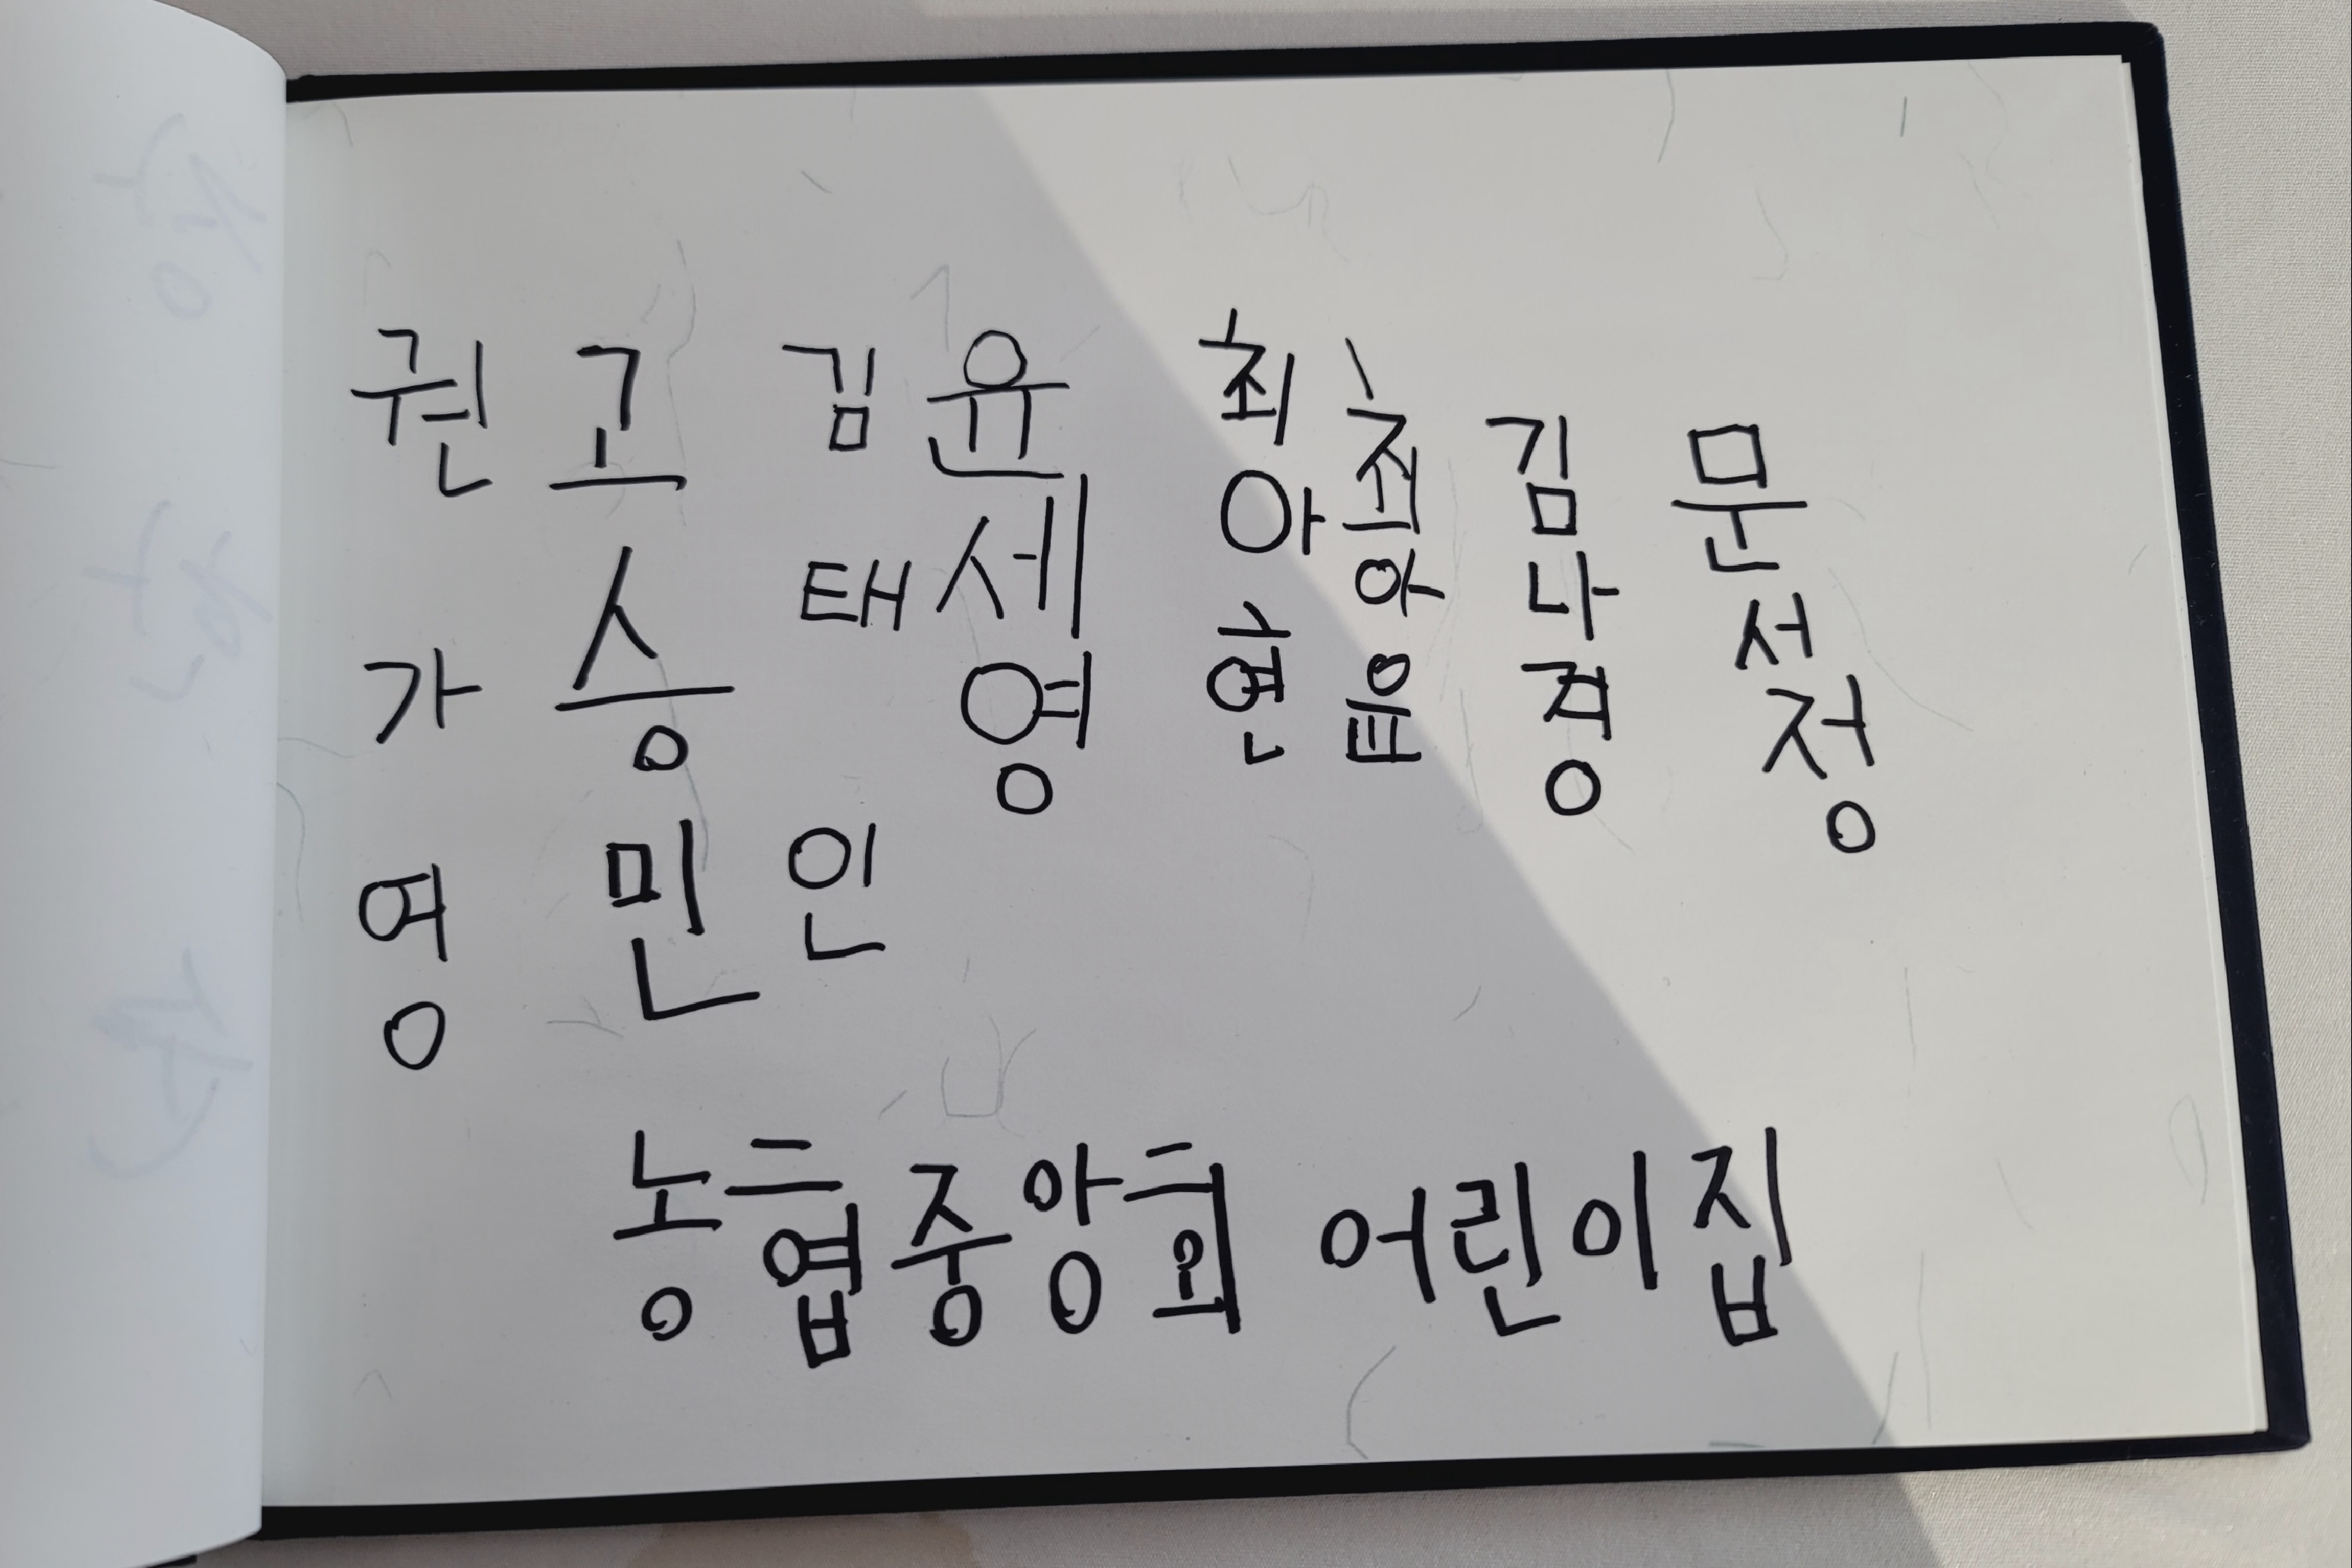 권가영
고승민
김태인
윤세영
최아현
최아윤
김나경
문서정
농협중앙회 어린이집